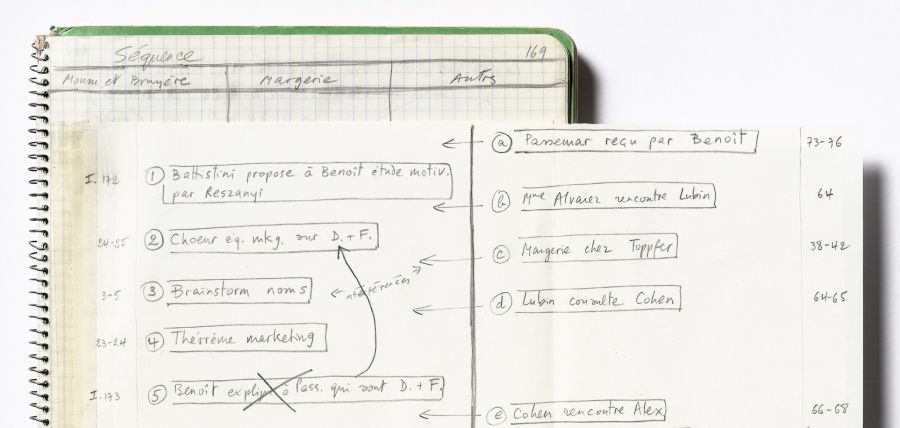 Séquence 169
et Bruyère Margerie Autres
(a) Passemar reçu par Benoît 73-76
I. 172 (1) Battistini propose à Benoît étude motiv.
par Reszanyi
(b) Mme Alvarez rencontre Lubin 64
24-25 (2) Choeur éq. mkg. sur D. + F.
(c) Margerie chez Toppfer 38-42
3-5 (3) Brainstorm noms ← interférences →
(d) Lubin consulte Cohen 64-65
23-24 (4) Théorème marketing
I. 173 (5) Benoît explique à Pass. qui sont D. + F.
(e) Cohen rencontre Alex 66-68